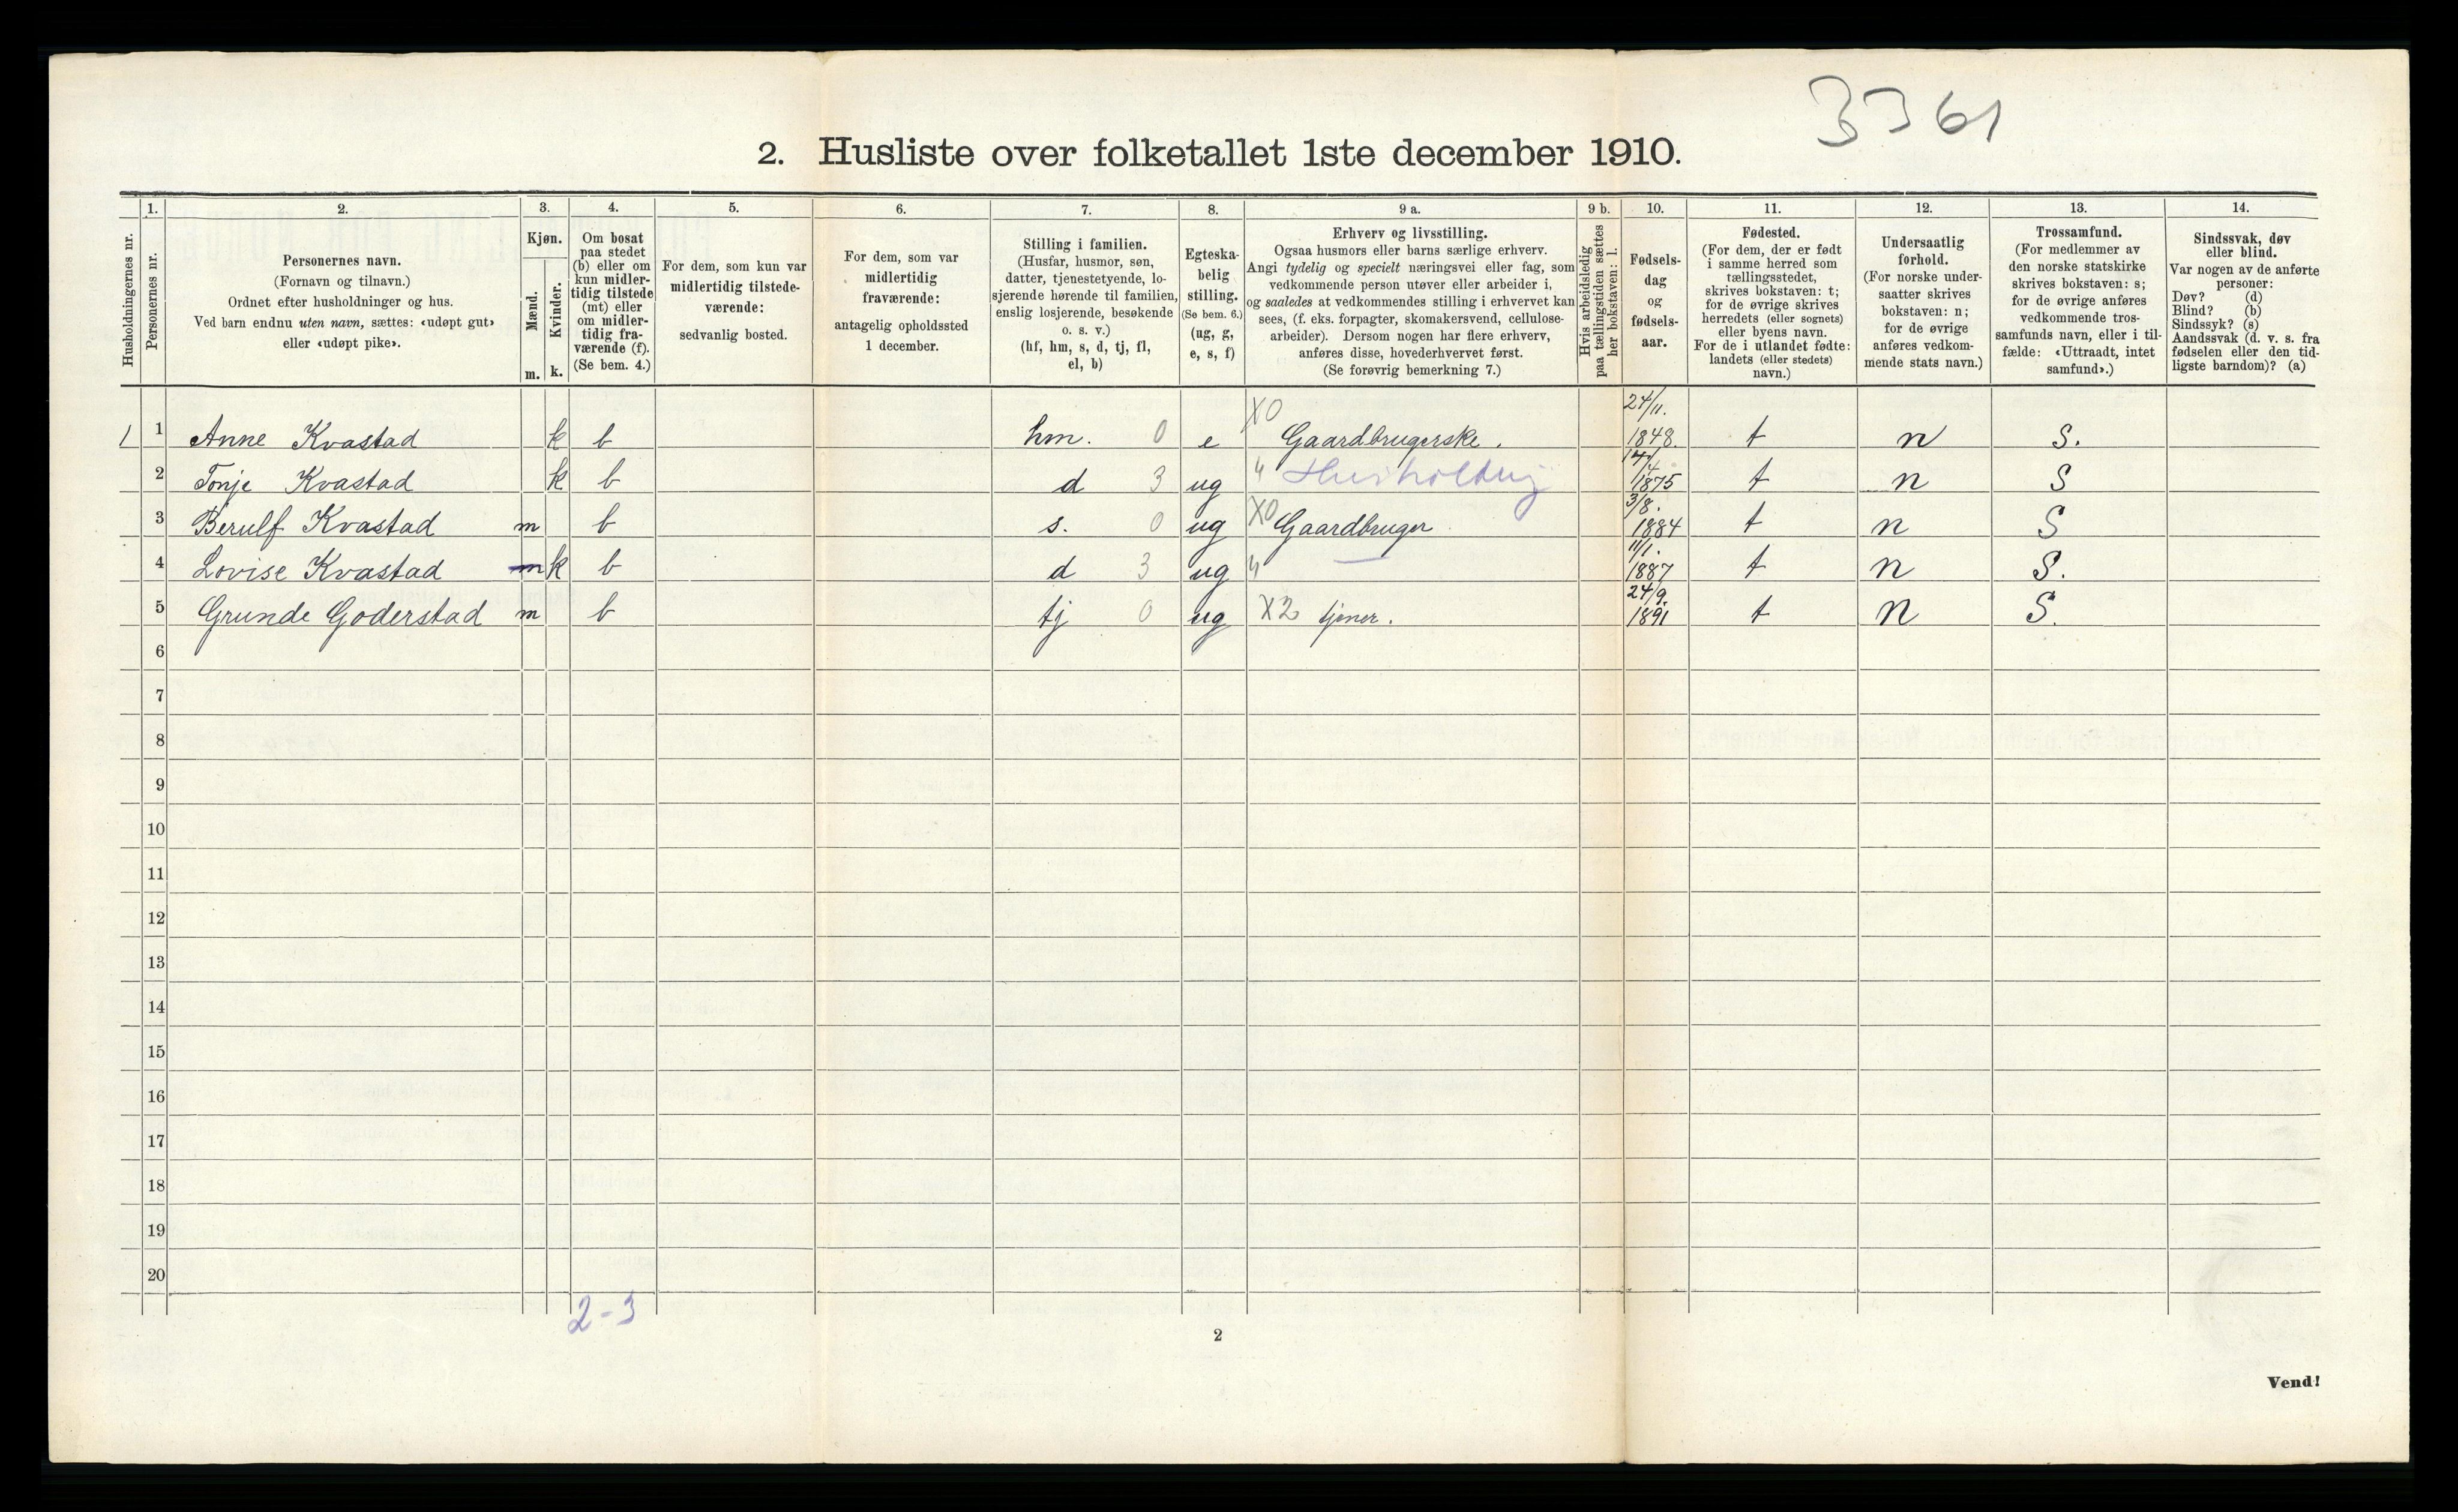 3361
2. Husliste over folketallet 1ste december 1910.
Husholdningernes nr.
1.
Personernes nr.
2.
Personernes navn.
(Fornavn og tilnavn.)
Ordnet efter husholdninger og hus.
Ved barn endnu uten navn, sættes: «udøpt gut»
eller «udøpt pike».
3.
Kjøn.
Mænd.
Kvinder.
m. k.
4.
Om bosat
paa stedet
(b) eller om
kun midler-
tidig tilstede
(mt) eller
om midler-
tidig fra-
værende (f).
(Se bem. 4.)
5.
For dem, som kun var
midlertidig tilstede-
værende:
sedvanlig bosted.
6.
For dem, som var
midlertidig
fraværende:
antagelig opholdssted
1 december.
7.
Stilling i familien.
(Husfar, husmor, søn,
datter, tjenestetyende, lo-
sjerende hørende til familien,
enslig losjerende, besøkende
o. s. v.)
(hf, hm, s, d, tj, fl,
el, b)
8.
Egteska-
belig
stilling.
(Se bem. 6.)
(ug, g,
e, s, f)
9 a.
Erhverv og livsstilling.
Ogsaa husmors eller barns særlige erhverv.
Angi tydelig og specielt næringsvei eller fag, som
vedkommende person utøver eller arbeider i,
og saaledes at vedkommendes stilling i erhvervet kan
sees, (f. eks. forpagter, skomakersvend, cellulose-
arbeider). Dersom nogen har flere erhverv,
anføres disse, hovederhvervet først.
(Se forøvrig bemerkning 7.)
9 b.
Hvis arbeidsledig
paa tællingstiden sættes
her bokstaven: l.
10.
Fødsels-
dag
og
fødsels-
aar.
11.
Fødested.
(For dem, der er født
i samme herred som
tællingsstedet,
skrives bokstaven: t;
for de øvrige skrives
herredets (eller sognets)
eller byens navn.
For de i utlandet fødte:
landets (eller stedets)
navn.)
12.
Undersaatlig
forhold.
(For norske under-
saatter skrives
bokstaven: n;
for de øvrige
anføres vedkom-
mende stats navn.)
13.
Trossamfund.
(For medlemmer av
den norske statskirke
skrives bokstaven: s;
for de øvrige anføres
vedkommende tros-
samfunds navn, eller i til-
fælde: «Uttraadt, intet
samfund».)
14.
Sindssvak, døv
eller blind.
Var nogen av de anførte
personer:
Døv? (d)
Blind? (b)
Sindssyk? (s)
Aandssvak (d. v. s. fra
fødselen eller den tid-
ligste barndom)? (a)
1 1 Anne Kvastad k b hm. 0 e X0 Gaardbrugerske. 24/11. 1848. t n S.
2 Tonje Kvastad k b d 3 ug 4 Husholdning 17/4 1875 t n S
3 Berulf Kvastad m b s. 0 ug X0 Gaardbruger 3/8. 1884 t n S
4 Lovise Kvastad m k b d 3 ug 4 — 11/1. 1887 t n S.
5 Grunde Goderstad m b tj 0 ug X2 tjener. 24/9. 1891 t n S.
6
7
8
9
10
11
12
13
14
15
16
17
18
19
20
2-3
2
Vend!